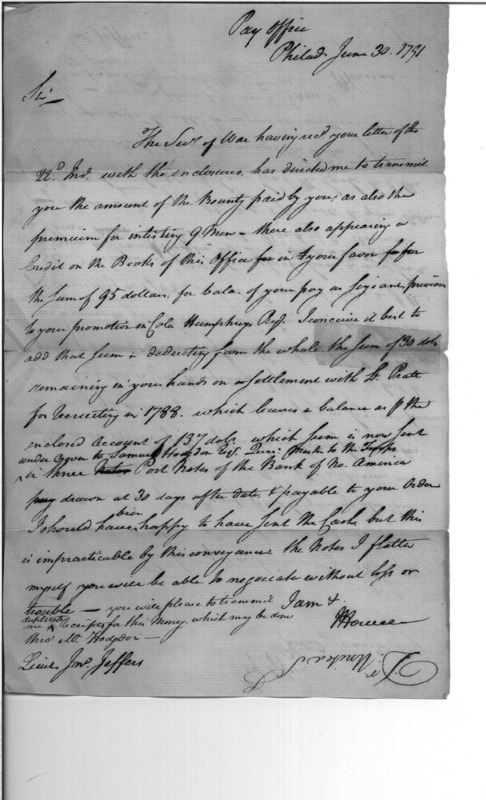 Pay Office
Philad. June 30. 1791
Sir
The Secy. of War having recd. your letter of the
22d. Inst. with the enclosures, has directed me to transmit
you the amount of the Bounty paid by you; as also the
premium for inlisting 9 Men - there also appearing a
Credit on the Books of this Office in your favor for
the sum of 95 dollars. for bala. of your pay as previous
to your promotion in Colo. Humphrys Regt. I conceive it best to
add that sum & deducting from the whole the sum of 30 dols.
remaining in your hands on settlement with Lt. Pratt
for recruiting in 1788. which leaves a balance as the
enclosed account of 137 dols. which sum is now sent
under cover to Samuel Hodgdon Esqr. Quar. Master to the Troops
in three Post Notes of the Bank of No. America
drawn at 30 days after date, & payable to your Order
I should have been happy to have sent the Cash, but this
is impracticable by this conveyance the Notes I flatter
myself you will be able to negociate without loss or
trouble - you will please to transmit I am &
duplicate
me receipts for this Money. which may be done JHowell
thro' Mr. Hodgdon -
Lieut. Jno. Jeffers